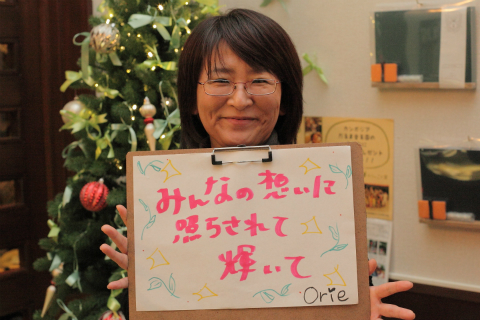 みんなの想いに
照らされて
輝いて
Orie